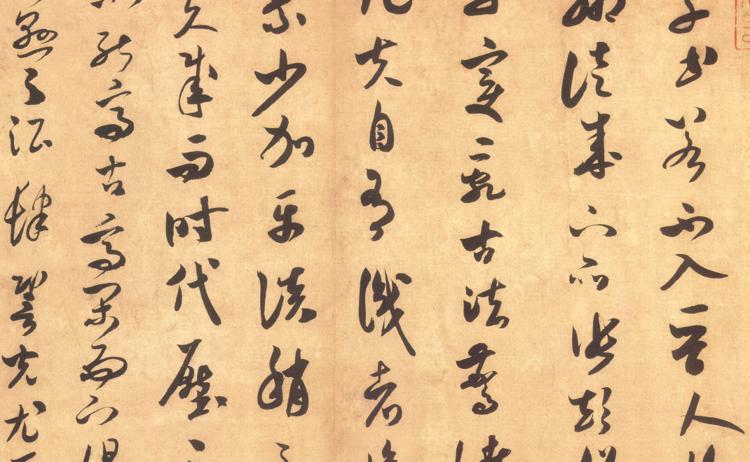 草書若不入晉人格
輒徒成下品張顛俗
子變亂古法驚諸
凡夫自有識者懷
素少加平淡稍到
天成而時代壓之
不能高古高閑而下但
懸之酒肆䛒光尤可